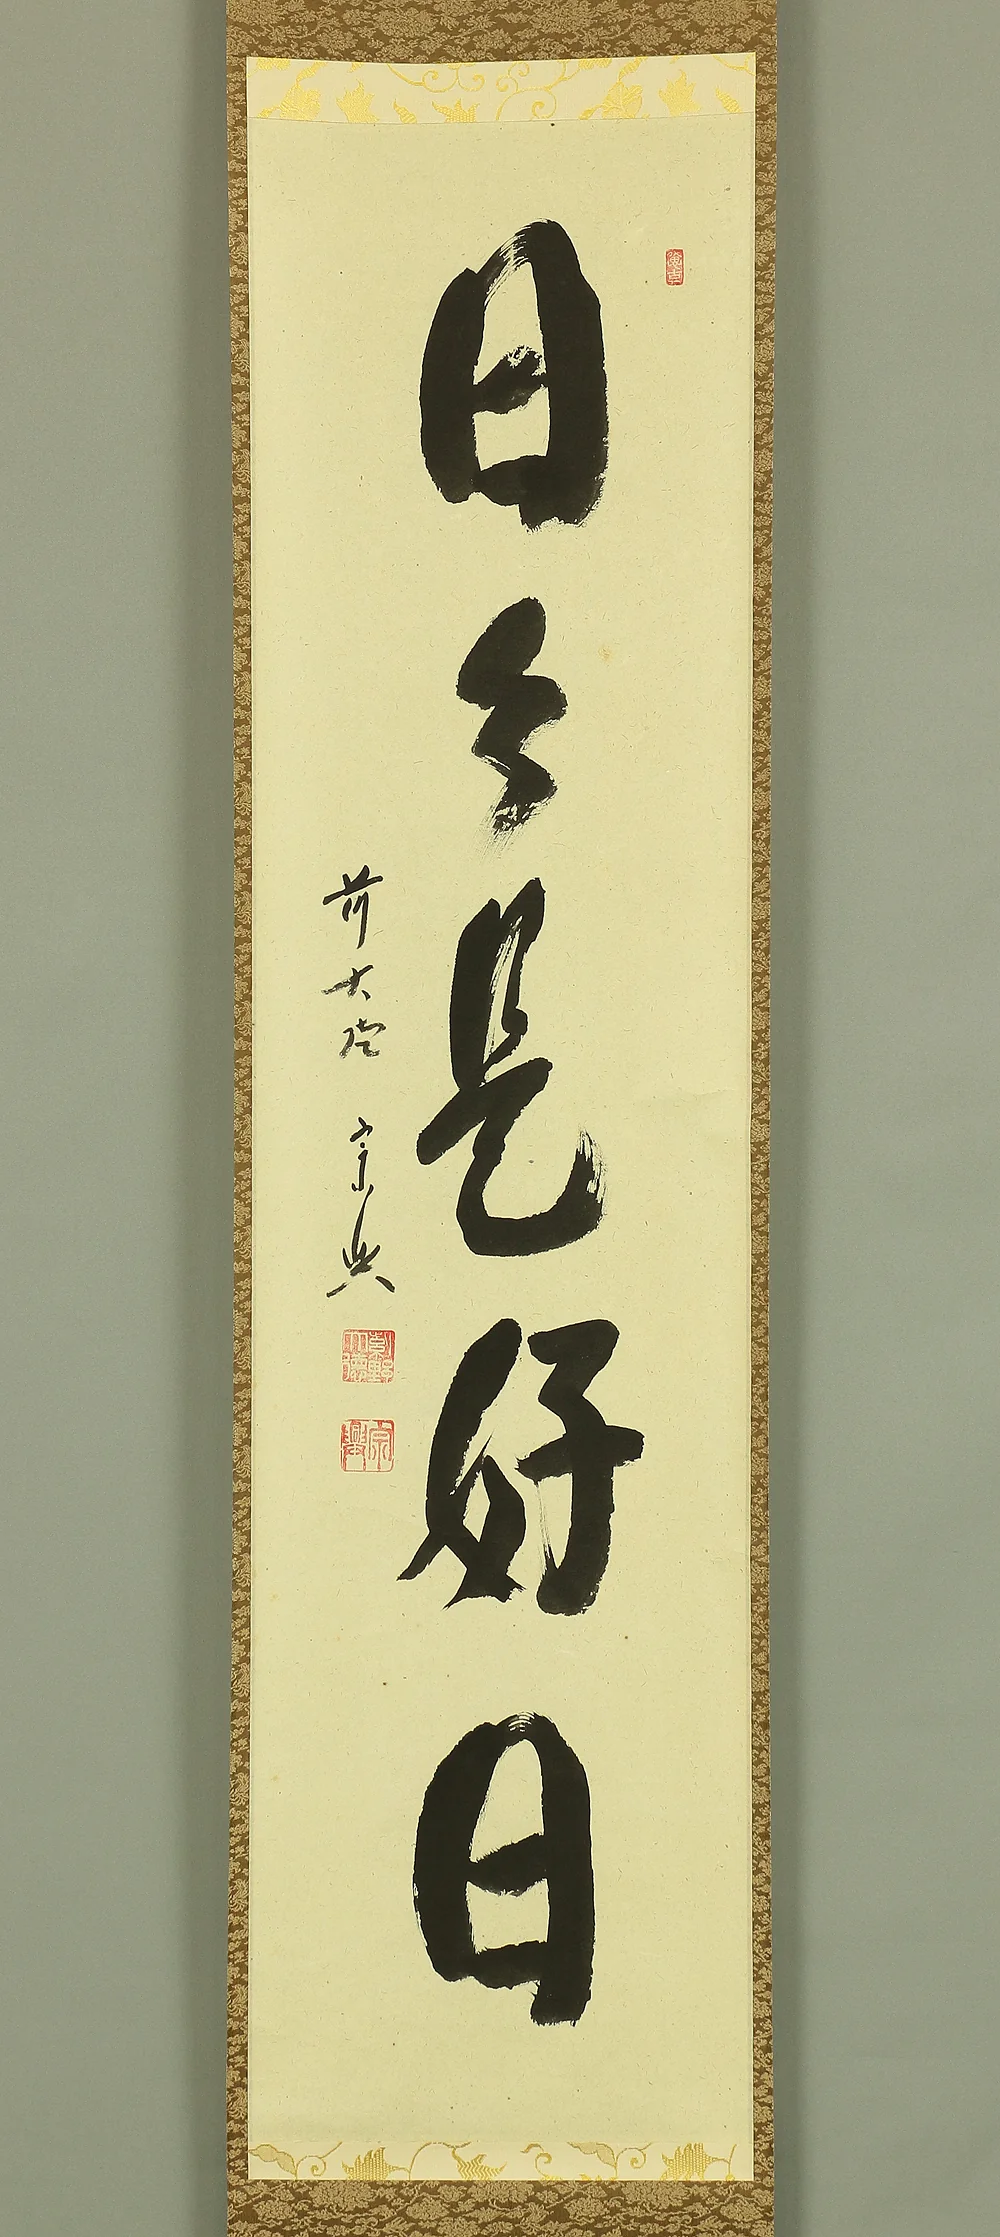 日々是好日
前大徳 宗興
宗興